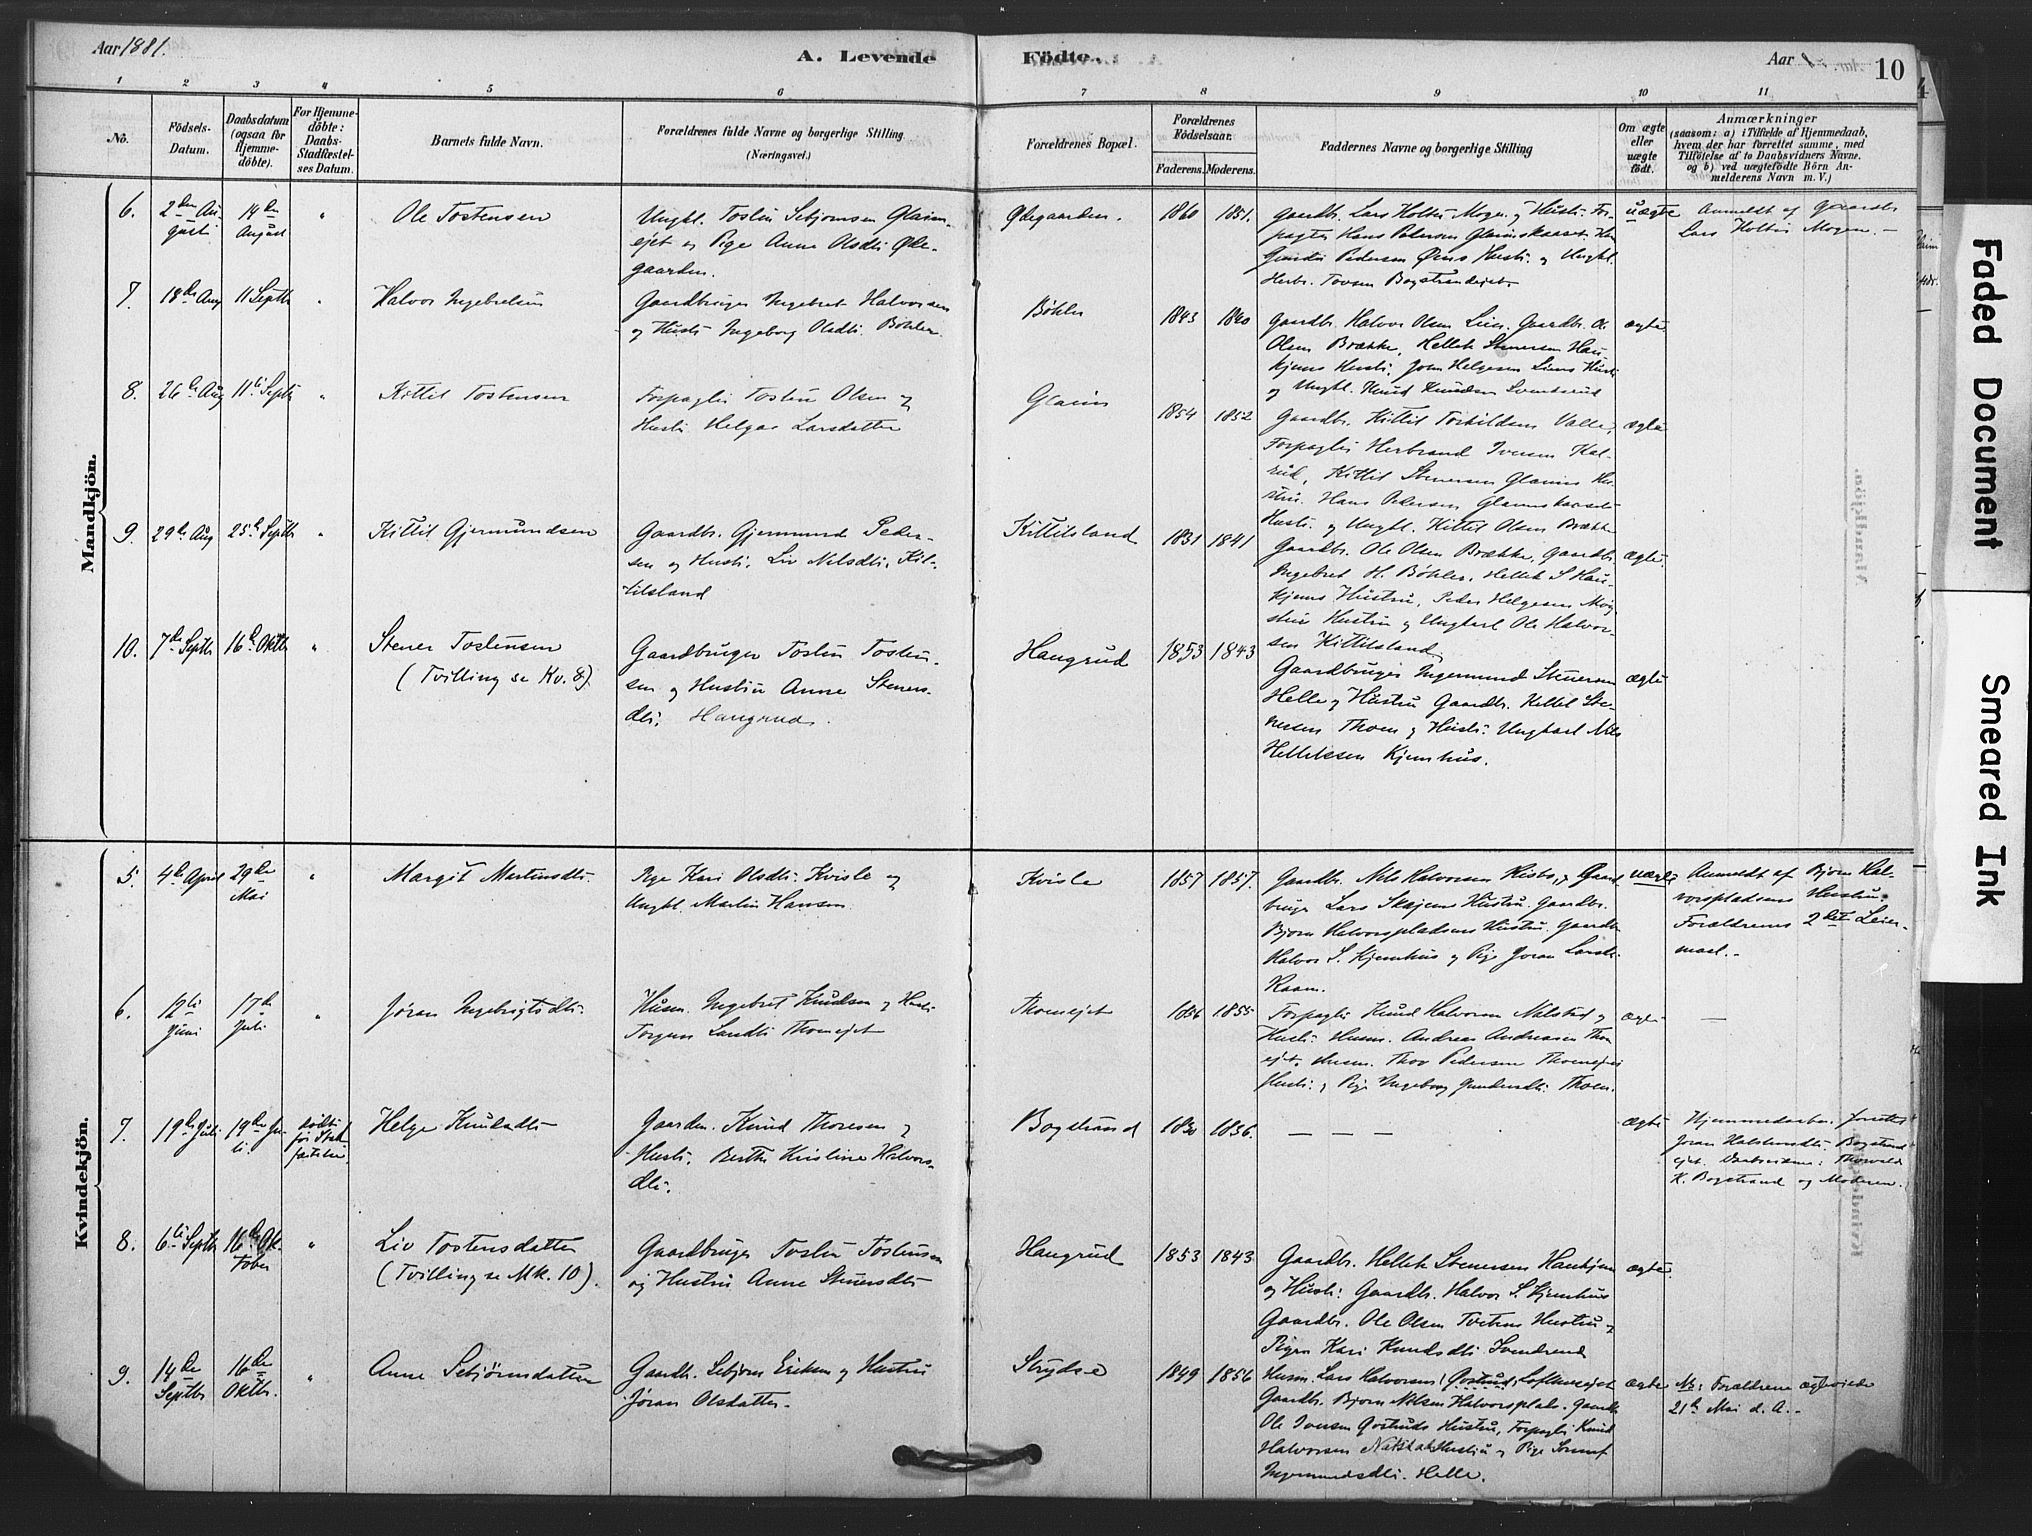 Aar 1881.
A. Levende
Födte.
Aar
10
1 2 3 4 5 6 7 8 9 10 11
No.
Födsels-Datum.
Daabsdatum (ogsaa for Hjemmedöbte).
For Hjemmedöbte: Daabs-Stadfæstelses Datum.
Barnets fulde Navn.
Forældrenes fulde Navne og borgerlige Stilling (Næringsvei.)
Forældrenes Bopæl.
Forældrenes Födselsaar.
Faderens. Moderens.
Faddernes Navne og borgerlige Stilling
Om ægte eller uægte födt.
Anmærkninger
(saasom: a) i Tilfælde af Hjemmedaab, hvem der har forrettet samme, med Tilföielse af to Daabsvidners Navne, og b) ved uægtefödte Börn Anmelderens Navn m. V.)
Mandkjön.
6. 2den August 14de August " Ole Tostensen
Ungkl. Tosten Sebjornsen Glaim-
ejet og Pige Anne Olsdtr. Øde-
gaarden.
Ødegaarden. 1860 1851.
Gaardbr. Lars Holter Mogen og Hustr. For-
pagter Hans Pedersen Glaimskaaset.
Pedersen Hustr. og Ungkl.
Herbr. Tovsen Bogstrandejet.
uægte Anmeldt af Gaardbr.
Lars Holter Mogen. —
7. 18de Aug 11 Septbr " Halvor Ingebretsen
Gaardbruger Ingebret Halvorsen
og Hustr. Ingeborg Olsdtr. Böhler.
Böhler 1843 1840
Gaardbr. Halvor Olsen Lien. Gaardbr. O.
Olsen Brække, Hellek Stenersen Hau-
kjems Hustr., John Helgesen Liens Hustr.
og Ungkl. Knud Knudsen Svendsrud
ægte
8. 26de Aug 11te Septbr " Kittil Tostensen
Forpagter Tosten Olsen og
Hustr. Helga Larsdatter
Glaim 1854 1852
Gaardbr. Kittil Torkildsen Valle,
Forpagter Herbrand Iversen Kal-
rud, Kittil Stenersen Glaims Hu-
stru. Hans Pedersen Glaimskaaset
Hustr. og Ungkl. Kittil Olsen Brække
ægte
9. 29de Aug 25de Septbr " Kittil Gjermundsen
Gaardbr. Gjermund Peder-
sen og Hustr. Liv Nelsdtr. Kit-
tilsland
Kittilsland 1831 1841
Gaardbr. Ole Olsen Brække, Gaardbr.
Ingebret H. Böhler, Hellek S Hau-
kjems Hustru, Peder Helgesen
Hustru og Ungkarl Ole Halvor-
sen Kittilsland
ægte.
10. 7de Septbr 16de Oktbr " Stener Tostensen
(Tvilling se Kv. 8).
Gaardbruger Tosten Tosten-
sen og Hustru Anne Steners-
dtr. Haugrud.
Haugrud 1853 1843
Gaardbruger Ingermund Stenersen
Helle og Hustru Gaardbr. Kittil Ste-
nersen Thoen og Hustr. Ungkarl Nils
Helleksen Kjemhus.
ægte
Kvindekjön.
5. 4de April 29de Mai " Margit Martinsdtr.
Pige Kari Olsdtr. Kvisle og
Ungkl. Martin Hansen
Kvisle 1857 1857.
Gaardbr. Nils Halvorsen og Gaard-
bruger Lars Skajems Hustru. Gaardbr.
Bjørn Halvorspladsens Hustru. Gaardbr.
Halvor S. Kjemhus og Pige Joran Larsdtr.
Raam.
uægte Anmeldt af Bjørn Hal-
vorspladsens Hustru.
Forældrenes 2det Leier-
maal. -
6. 12te Juni 17de Juli " Jøran Ingebrigtsdtr.
Husm. Ingebret Knudsen og Hustr.
Thoenejet
Thoenejet 1856 1855
Forpagter Knud Halvorsen Nalstad og
Hustr. Husm. Andreas Andreassen Thoen-
ejet. Husm. Thov Pedersen Thoenejets
Hustr. og Pige Ingeborg Gundersdtr. Thoen.
ægte —
7. 19de Juli 19de Juli. Helge Knudsdtr.
Gaardm. Knud Thoresen og
Hustr. Berthe Kristine Halvors-
dtr.
Bogstrand 1830 1836.
— — —
ægte Hjemmedaaben forrettet
Joran Halstensdtr. Bogstrand-
ejet. Daabsvidner: Thorvald
K. Bogstrand og Moderen.
8. 6te Septbr 16de Oktober " Liv Tostensdatter
(Tvilling se Mk. 10).
Gaardbruger Tosten Tostensen
og Hustru Anne Stenersdtr.
Haugrud 1853 1843
Gaardbr. Hellek Stenersen Haukjem
og Hustr. Gaardbr. Halvor S. Kjemhus
Gaardbr. Ole Olsen Hustru og
Pigen Kari Knudsdtr. Svendsrud
ægte.
9. 14de Septbr 16de Oktbr. " Anne Sebjörnsdatter
Gaardbr. Sebjørn Eriksen og Hustru
Jøran Olsdatter.
Strydse 1849 1856
Husm. Lars Halvorsen (Gostrud) Lofthusejet
Gaardbr. Bjørn Nilsen Halvorsplads. Gaardbr.
Ole Iversen Gostruds Hustru, Forpagter Knud
Halvorsen Nalstads Hustru og Pige
Ingermundsdtr. Helle.
ægte Nb: Forældrene ægteviede
21de Mai d. A. -
Faded Document
Smeared Ink